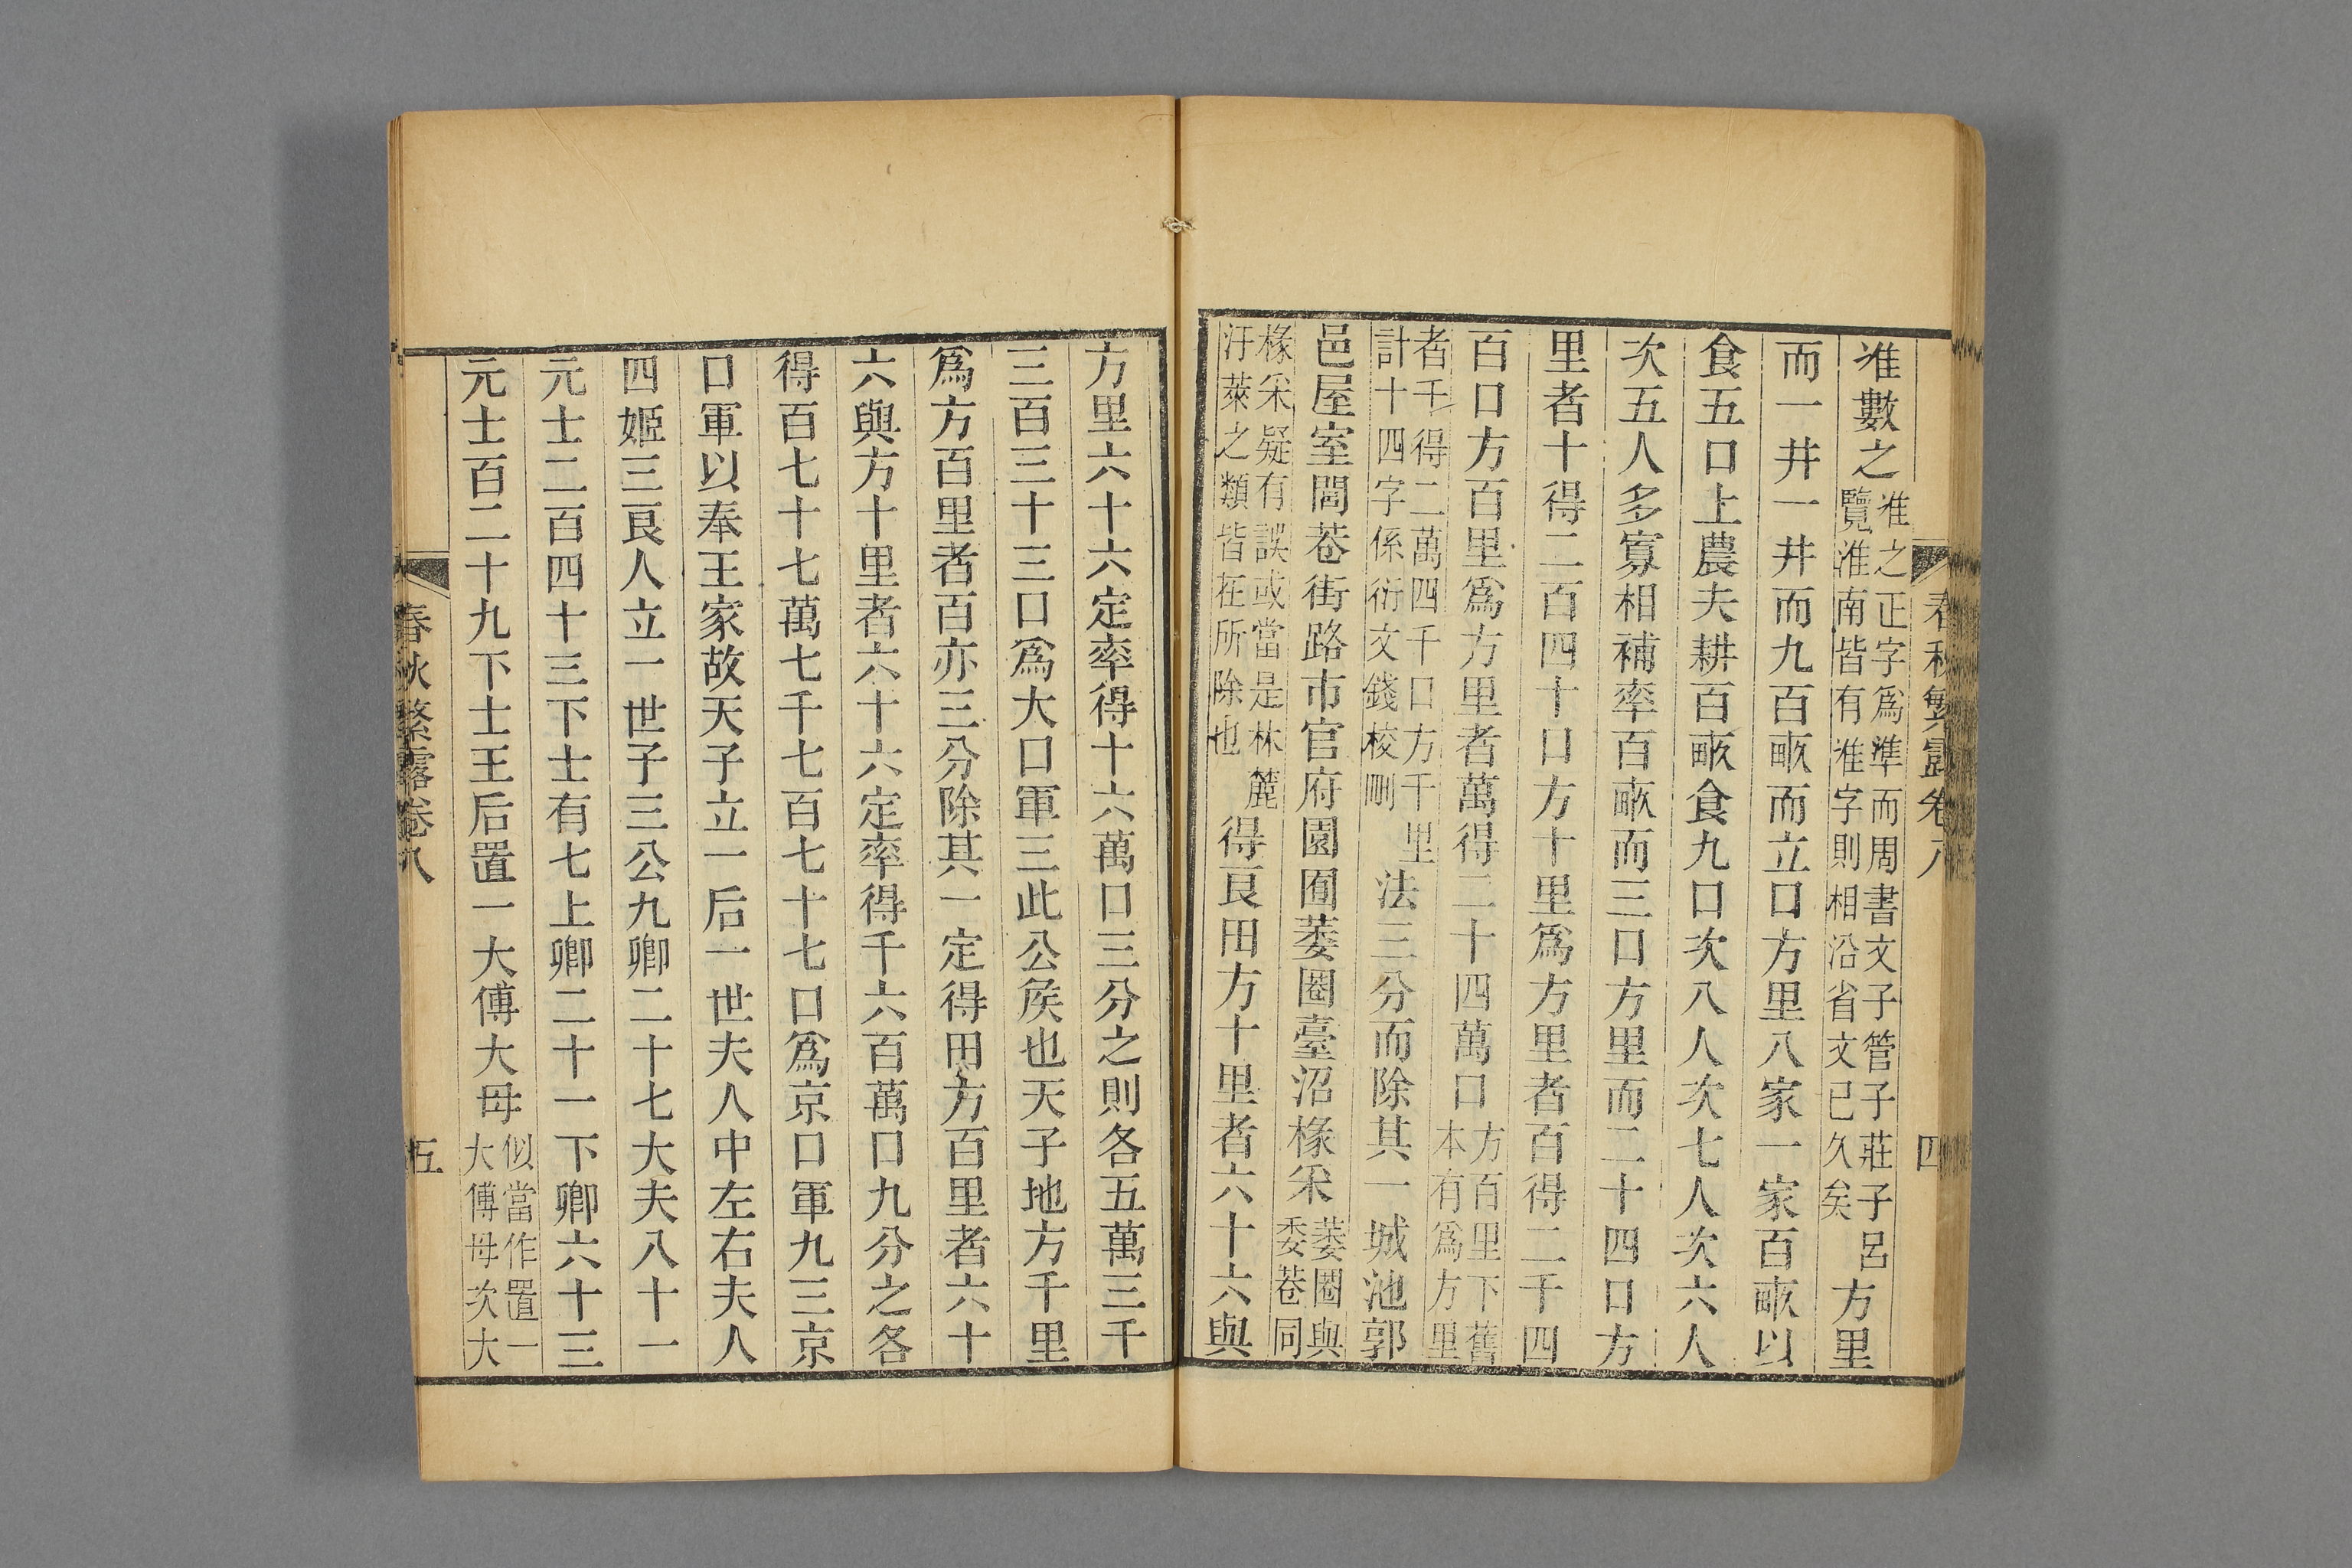 春秋繁露卷八 四
准數之准之正字爲準而周書文子管子莊子呂覽淮南皆有准字則相沿省文已久矣方里
而一井一井而九百畞而立口方里八家一家百畞以
食五口上農夫耕百畞食九口次八人次七人次六人
次五人多寡相補率百畞而三口方里而二十四口方
里者十得二百四十口方十里爲方里者百得二千四
百口方百里爲方里者萬得二十四萬口方百里下舊本有爲方里
者千得二萬四千口方千里計十四字係衍文錢校刪法三分而除其一城池郭
邑屋室閭巷街路市官府園囿萎圈臺沼椽采萎圈與委巷同
椽采疑有誤或當是林麓汙萊之類皆在所除也得良田方十里者六十六與
方里六十六定率得十六萬口三分之則各五萬三千
三百三十三口爲大口軍三此公矦也天子地方千里
爲方百里者百亦三分除其一定得田方百里者六十
六與方十里者六十六定率得千六百萬口九分之各
得百七十七萬七千七百七十七口爲京口軍九三京
口軍以奉王家故天子立一后一世夫人中左右夫人
四姬三良人立一世子三公九卿二十七大夫八十一
元士二百四十三下士有七上卿二十一下卿六十三
元士百二十九下士王后置一大傅大母似當作置一大傅母次大
春秋繁露卷八 五